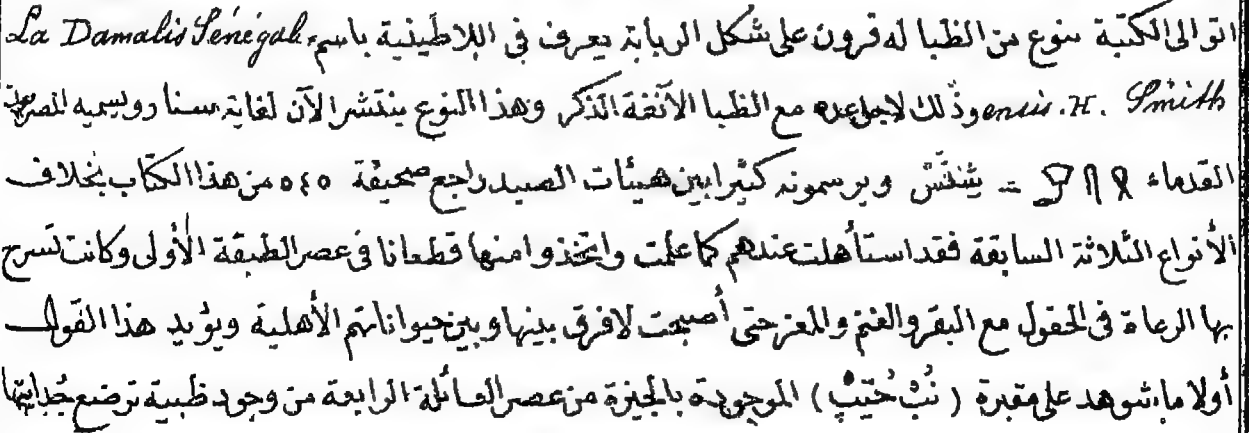 التوالى الكتبة بنوع من الظبا له قرون على شكل الربابة يعرف فى اللاطينية باسم La Damalis Sénégal.
ensis. H. Smith وذلك لاجل عده مع الظبا الآنفة الذكر وهذا النوع ينتشر الآن لغاية سنار ويسميه المصريون
القدماء = شِنَشْ ويرسمونه كثيرا بين هيئات الصيد راجع صحيفة ٥٤٥ من هذا الكتاب بخلاف
الأنواع الثلاثة السابقة فقد استأهلت عندهم كما علمت واتخذوا منها قطعانا فى عصر الطبقة الأولى وكانت تسرح
بها الرعاة فى الحقول مع البقر والغنم والمعز حتى أصبحت لافرق بينها وبين حيواناتهم الأهلية ويؤيد هذا القول
أولا ماشوهد على مقبرة (نُبْ حُتِبْ) الموجودة بالجيزة من عصر العائلة الرابعة من وجود ظبية ترضع جُدايتها